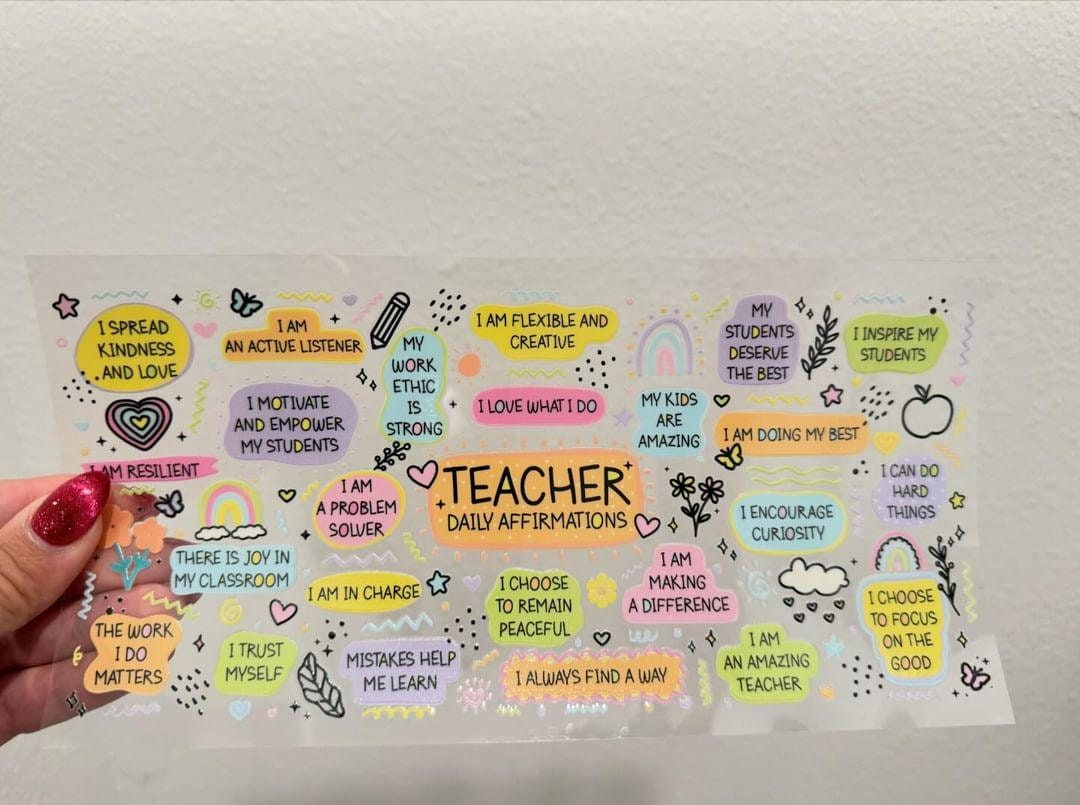 I SPREAD
KINDNESS
AND LOVE
I AM
AN ACTIVE LISTENER
MY
WORK
ETHIC
IS
STRONG
I AM FLEXIBLE AND
CREATIVE
MY
STUDENTS
DESERVE
THE BEST
I INSPIRE MY
STUDENTS
I MOTIVATE
AND EMPOWER
MY STUDENTS
I LOVE WHAT I DO
MY KIDS
ARE
AMAZING
I AM DOING MY BEST
I AM RESILIENT
I AM
A PROBLEM
SOLVER
TEACHER
DAILY AFFIRMATIONS
I ENCOURAGE
CURIOSITY
I CAN DO
HARD
THINGS
THERE IS JOY IN
MY CLASSROOM
I AM IN CHARGE
I CHOOSE
TO REMAIN
PEACEFUL
I AM
MAKING
A DIFFERENCE
I CHOOSE
TO FOCUS
ON THE
GOOD
THE WORK
I DO
MATTERS
I TRUST
MYSELF
MISTAKES HELP
ME LEARN
I ALWAYS FIND A WAY
I AM
AN AMAZING
TEACHER